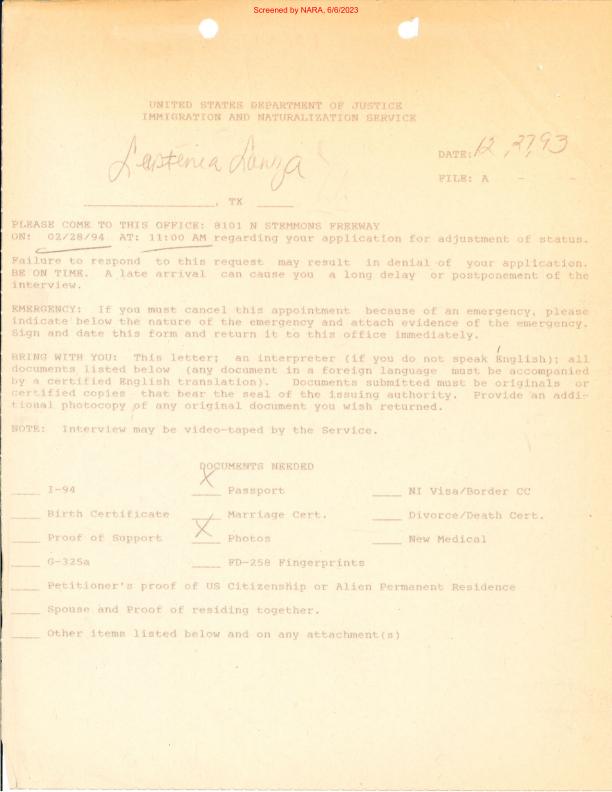 Screened by NARA, 6/6/2023
UNITED STATES DEPARTMENT OF JUSTICE
IMMIGRATION AND NATURALIZATION SERVICE
Lastenia Lanza
DATE: 12, 27, 93
FILE: A - -
, TX
PLEASE COME TO THIS OFFICE: 8101 N STEMMONS FREEWAY
ON: 02/28/94 AT: 11:00 AM regarding your application for adjustment of status.
Failure to respond to this request may result in denial of your application.
BE ON TIME. A late arrival can cause you a long delay or postponement of the
interview.
EMERGENCY: If you must cancel this appointment because of an emergency, please
indicate below the nature of the emergency and attach evidence of the emergency.
Sign and date this form and return it to this office immediately.
BRING WITH YOU: This letter; an interpreter (if you do not speak English); all
documents listed below (any document in a foreign language must be accompanied
by a certified English translation). Documents submitted must be originals or
certified copies that bear the seal of the issuing authority. Provide an addi-
tional photocopy of any original document you wish returned.
NOTE: Interview may be video-taped by the Service.
DOCUMENTS NEEDED
____ I-94 X Passport ____ NI Visa/Border CC
____ Birth Certificate ____ Marriage Cert. ____ Divorce/Death Cert.
____ Proof of Support X Photos ____ New Medical
____ G-325a ____ FD-258 Fingerprints
____ Petitioner's proof of US Citizenship or Alien Permanent Residence
____ Spouse and Proof of residing together.
____ Other items listed below and on any attachment(s)